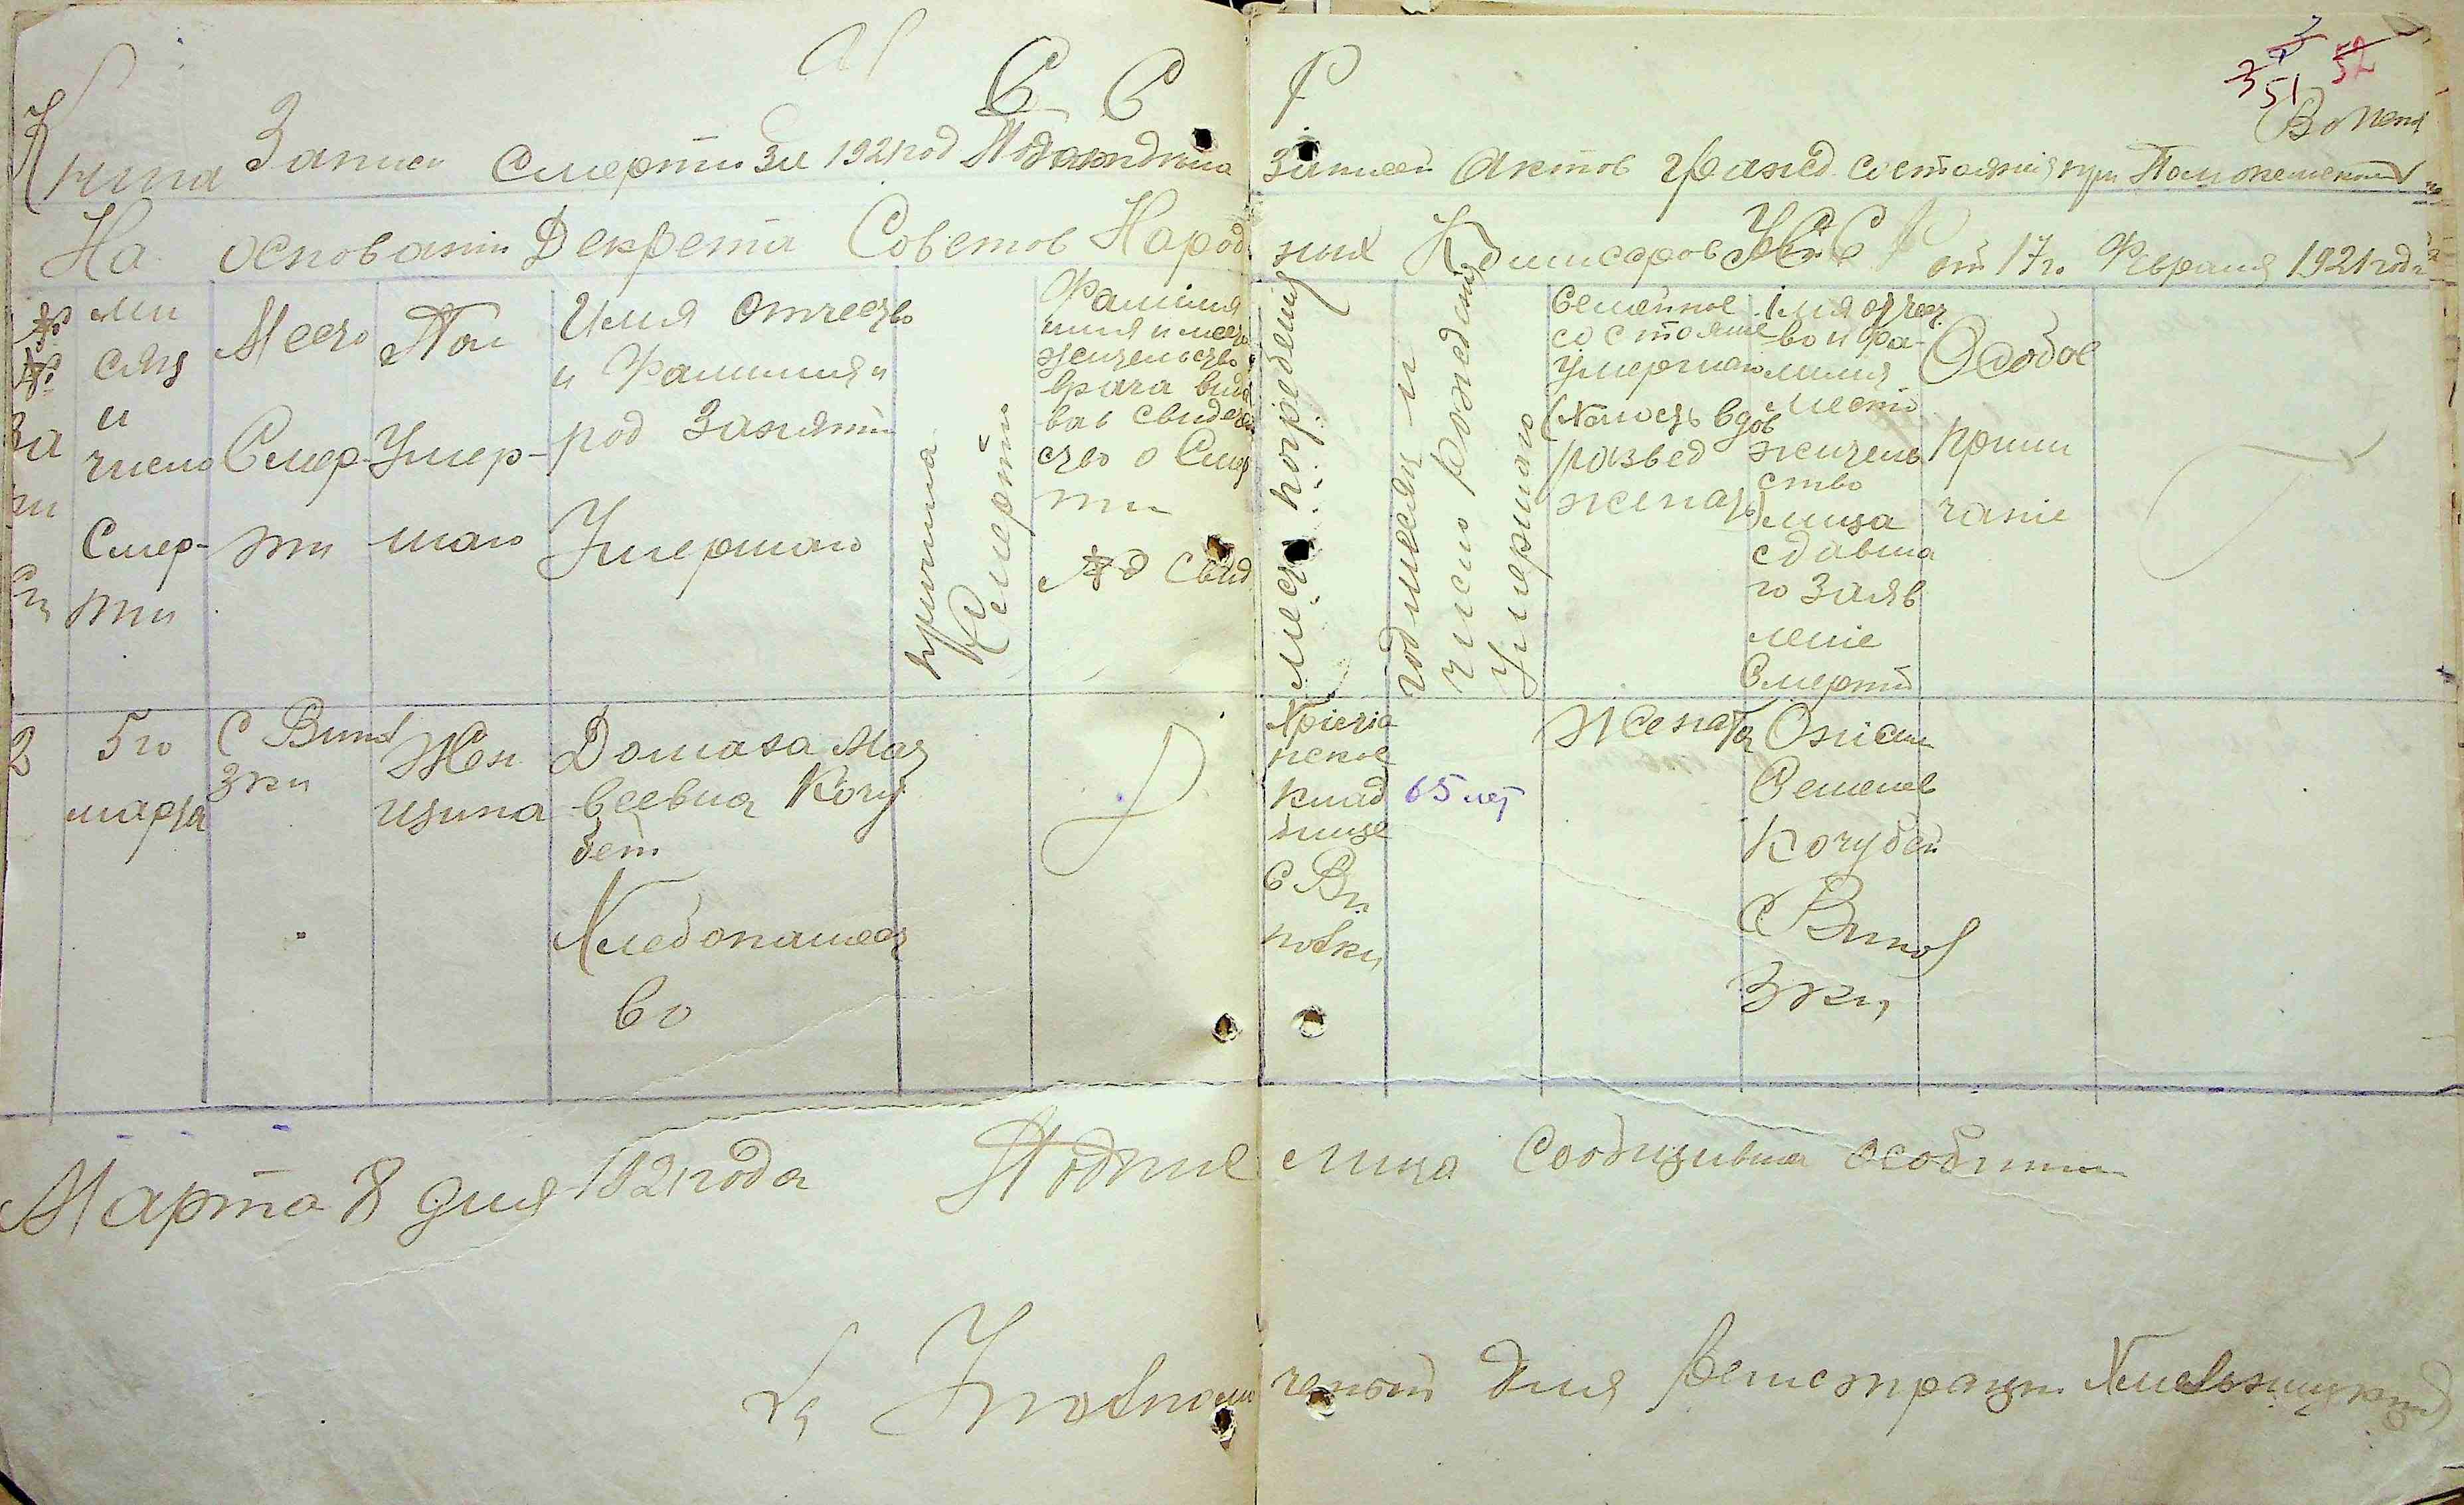 С С Р
3 51 52
Книга Записи Смерти за 1921 год Подотдела Записей Актов Гражд. состояния при
На основании Декрета Советов Народных Комисаров УССР от 17го Февраля 1921 года
№ №
за
пи
си
ми
сяц
и
число
Смер-
ти
Место
Смер-
ти
Пол
Умер-
шаго
Имя Отчество
и Фамилия и
род Занятий
Умершаго
причина
Смерти
Фамилия
имя и место
жительство
врача выда
вав свидетель
ство о Смер
ти
№ Свид.
Место погребения
год месяц и
число рождения
Умершаго
Семейное
состояние
умершаго
(холост вдов
развед
женат)
Имя отчест
во и фа-
милия
место
житель
ство
лица
сдавша
го Заяв
ление
Смерти
Особое
приме
чание
2
5 го
марта
С Вино
Жен
щина
Домаха Мат
веевна Кочу
бей
Хлебопашест
во
кладбище
С Ви
новки
65 лет
женатая
Онісим
Семенов
Кочубей
С Вино
Марта 8 дня 1921 года Подпис лица Сообщивша
Уполномоченый для Регистрации Хмельницкий